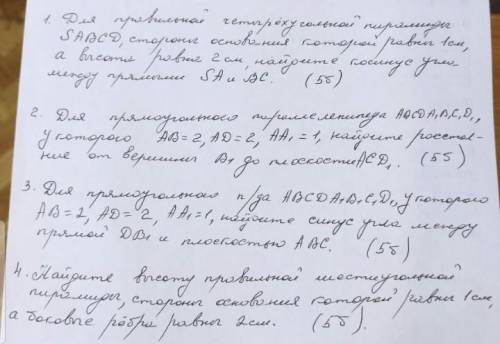 1. Для правильной четырёхугольной пирамиды
SABCD, стороны основания которой равны 1см,
а высота равна 2см, найдите косинус угла
между прямыми SA и BC. (5б)
2. Для прямоугольного параллелепипеда ABCDA₁B₁C₁D₁,
у которого AB=2, AD=2, AA₁=1, найдите расстоя-
ние от вершины B₁ до плоскости ACD₁. (5б)
3. Для прямоугольного п/да ABCDA₁B₁C₁D₁, у которого
AB=2, AD=2, AA₁=1, найдите синус угла между
прямой DB₁ и плоскостью ABC. (5б)
4. Найдите высоту правильной шестиугольной
пирамиды, стороны основания которой равны 1см,
а боковые рёбра равны 2см. (5б).